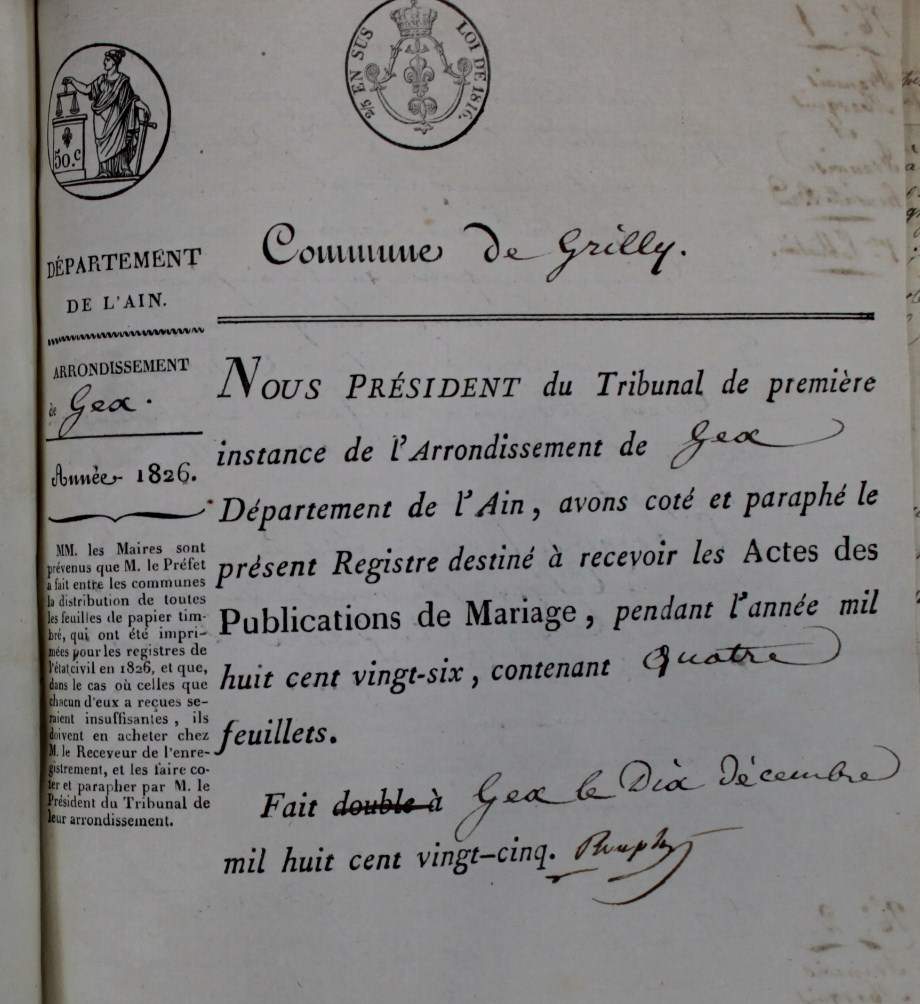 2/5 EN SUS LOI DE 1816.
50.c
DÉPARTEMENT
DE L'AIN.
ARRONDISSEMENT
de Gex.
Année 1826.
MM. les Maires sont
prévenus que M. le Préfet
a fait entre les communes
la distribution de toutes
les feuilles de papier tim-
bré, qui ont été impri-
mées pour les registres de
l'état civil en 1826, et que,
dans le cas où celles que
chacun d'eux a reçues se-
raient insuffisantes, ils
doivent en acheter chez
M. le Receveur de l'enre-
gistrement, et les faire co-
ter et parapher par M. le
Président du Tribunal de
leur arrondissement.
Commune de Grilly.
NOUS PRÉSIDENT du Tribunal de première
instance de l'Arrondissement de Gex
Département de l'Ain, avons coté et paraphé le
présent Registre destiné à recevoir les Actes des
Publications de Mariage, pendant l'année mil
huit cent vingt-six, contenant Quatre
feuillets.
Fait double à Gex le Dix Décembre
mil huit cent vingt-cinq.